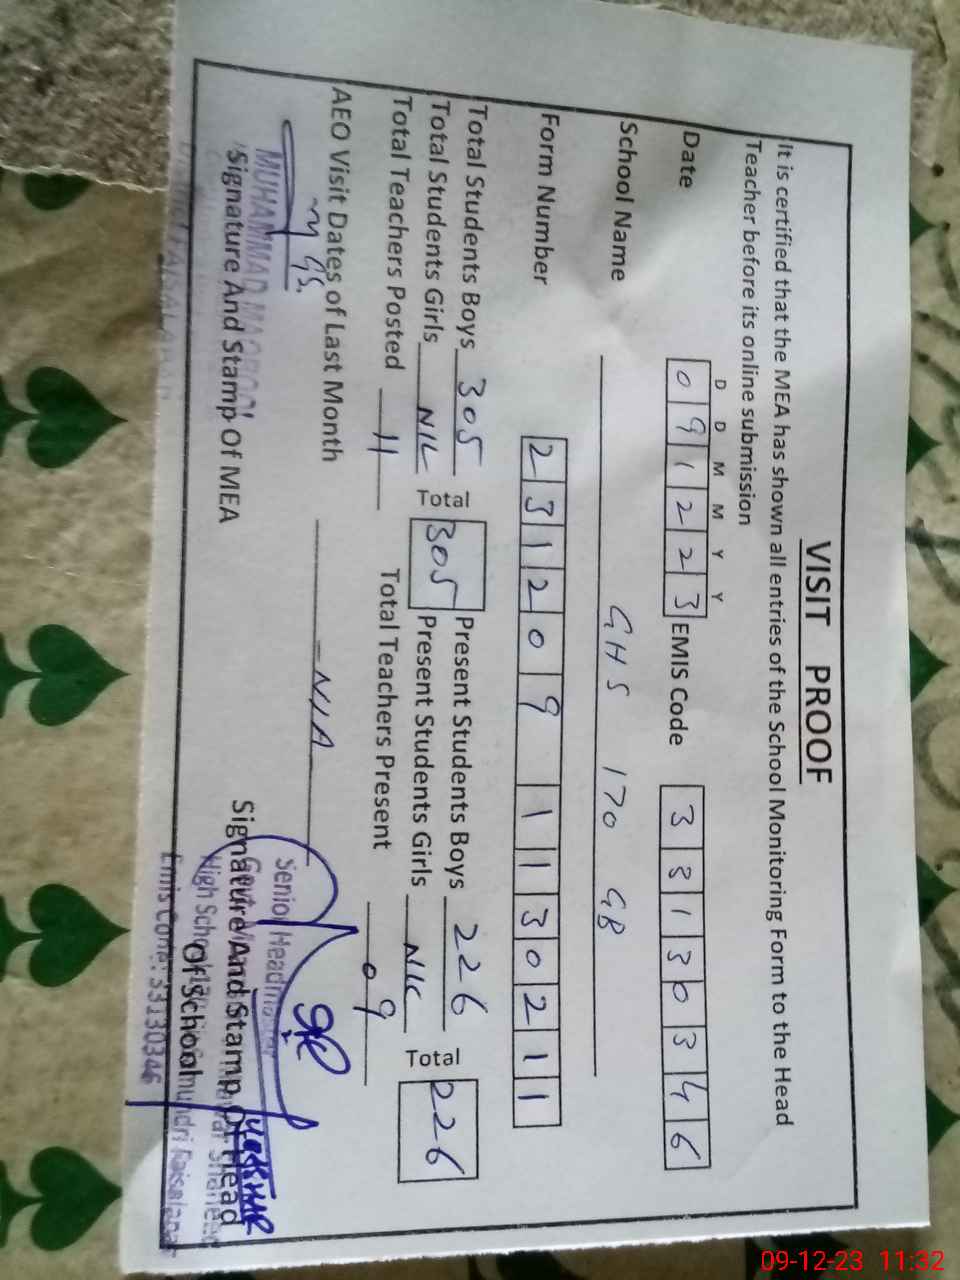 VISIT PROOF
It is certified that the MEA has shown all entries of the School Monitoring Form to the Head
Teacher before its online submission
D D M M Y Y
Date 0 9 1 2 2 3 EMIS Code 3 3 1 3 0 3 4 6
School Name GHS 170 GB
Form Number 2 3 1 2 0 9 1 1 3 0 2 1 1
Total Students Boys 305 Total 305 Present Students Boys 226 Total 226
Total Students Girls NIL Present Students Girls NIL
Total Teachers Posted 11 Total Teachers Present 09
AEO Visit Dates of Last Month - N/A
MUHAMMAD
Signature And Stamp Of MEA
Senior Headmaster
Signature And Stamp Of Head
Of School
High School
Emis Code: 33130346
09-12-23 11:32